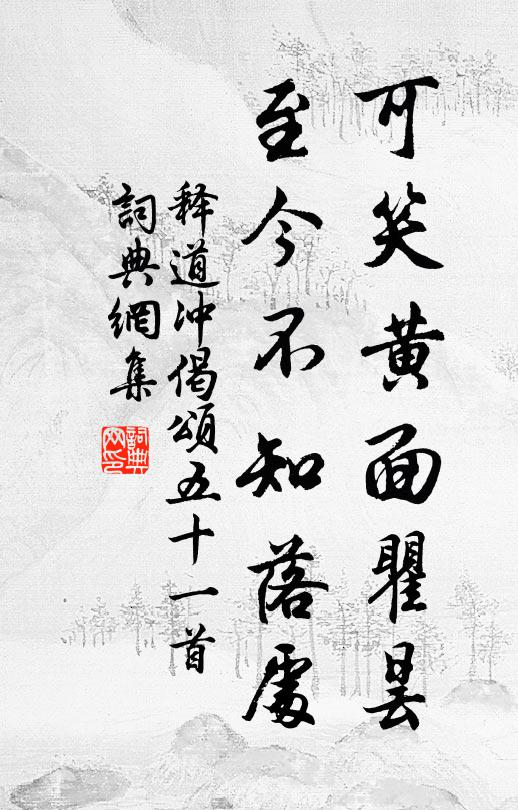 可笑黄面瞿昙
至今不知落處
释道冲偈頌五十一首
詞典網集
詞典
网印